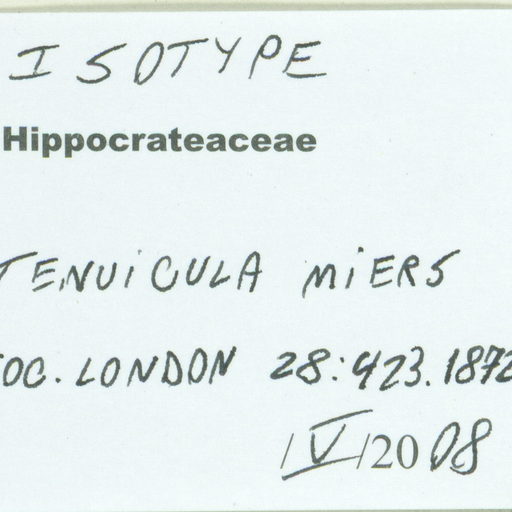 ISOTYPE
Hippocrateaceae
TENUICULA MIERS
SOC. LONDON 28:423.1872
/V/2008